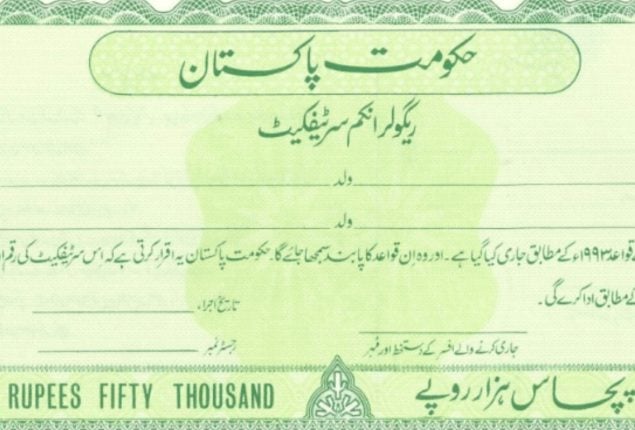 حکومت پاکستان
ریگولر انکم سرٹیفکیٹ
ولد
ولد
قواعد ۱۹۹۳ء کے مطابق جاری کیا گیا ہے۔ اور وہ ان قواعد کا پابند سمجھا جائے گا۔ حکومت پاکستان یہ اقرار کرتی ہے کہ اس سرٹیفکیٹ کی رقم
کے مطابق ادا کرے گی۔
تاریخ اجراء
جاری کرنے والے افسر کے دستخط اور نمبر
رجسٹر نمبر
پچاس ہزار روپے
RUPEES FIFTY THOUSAND